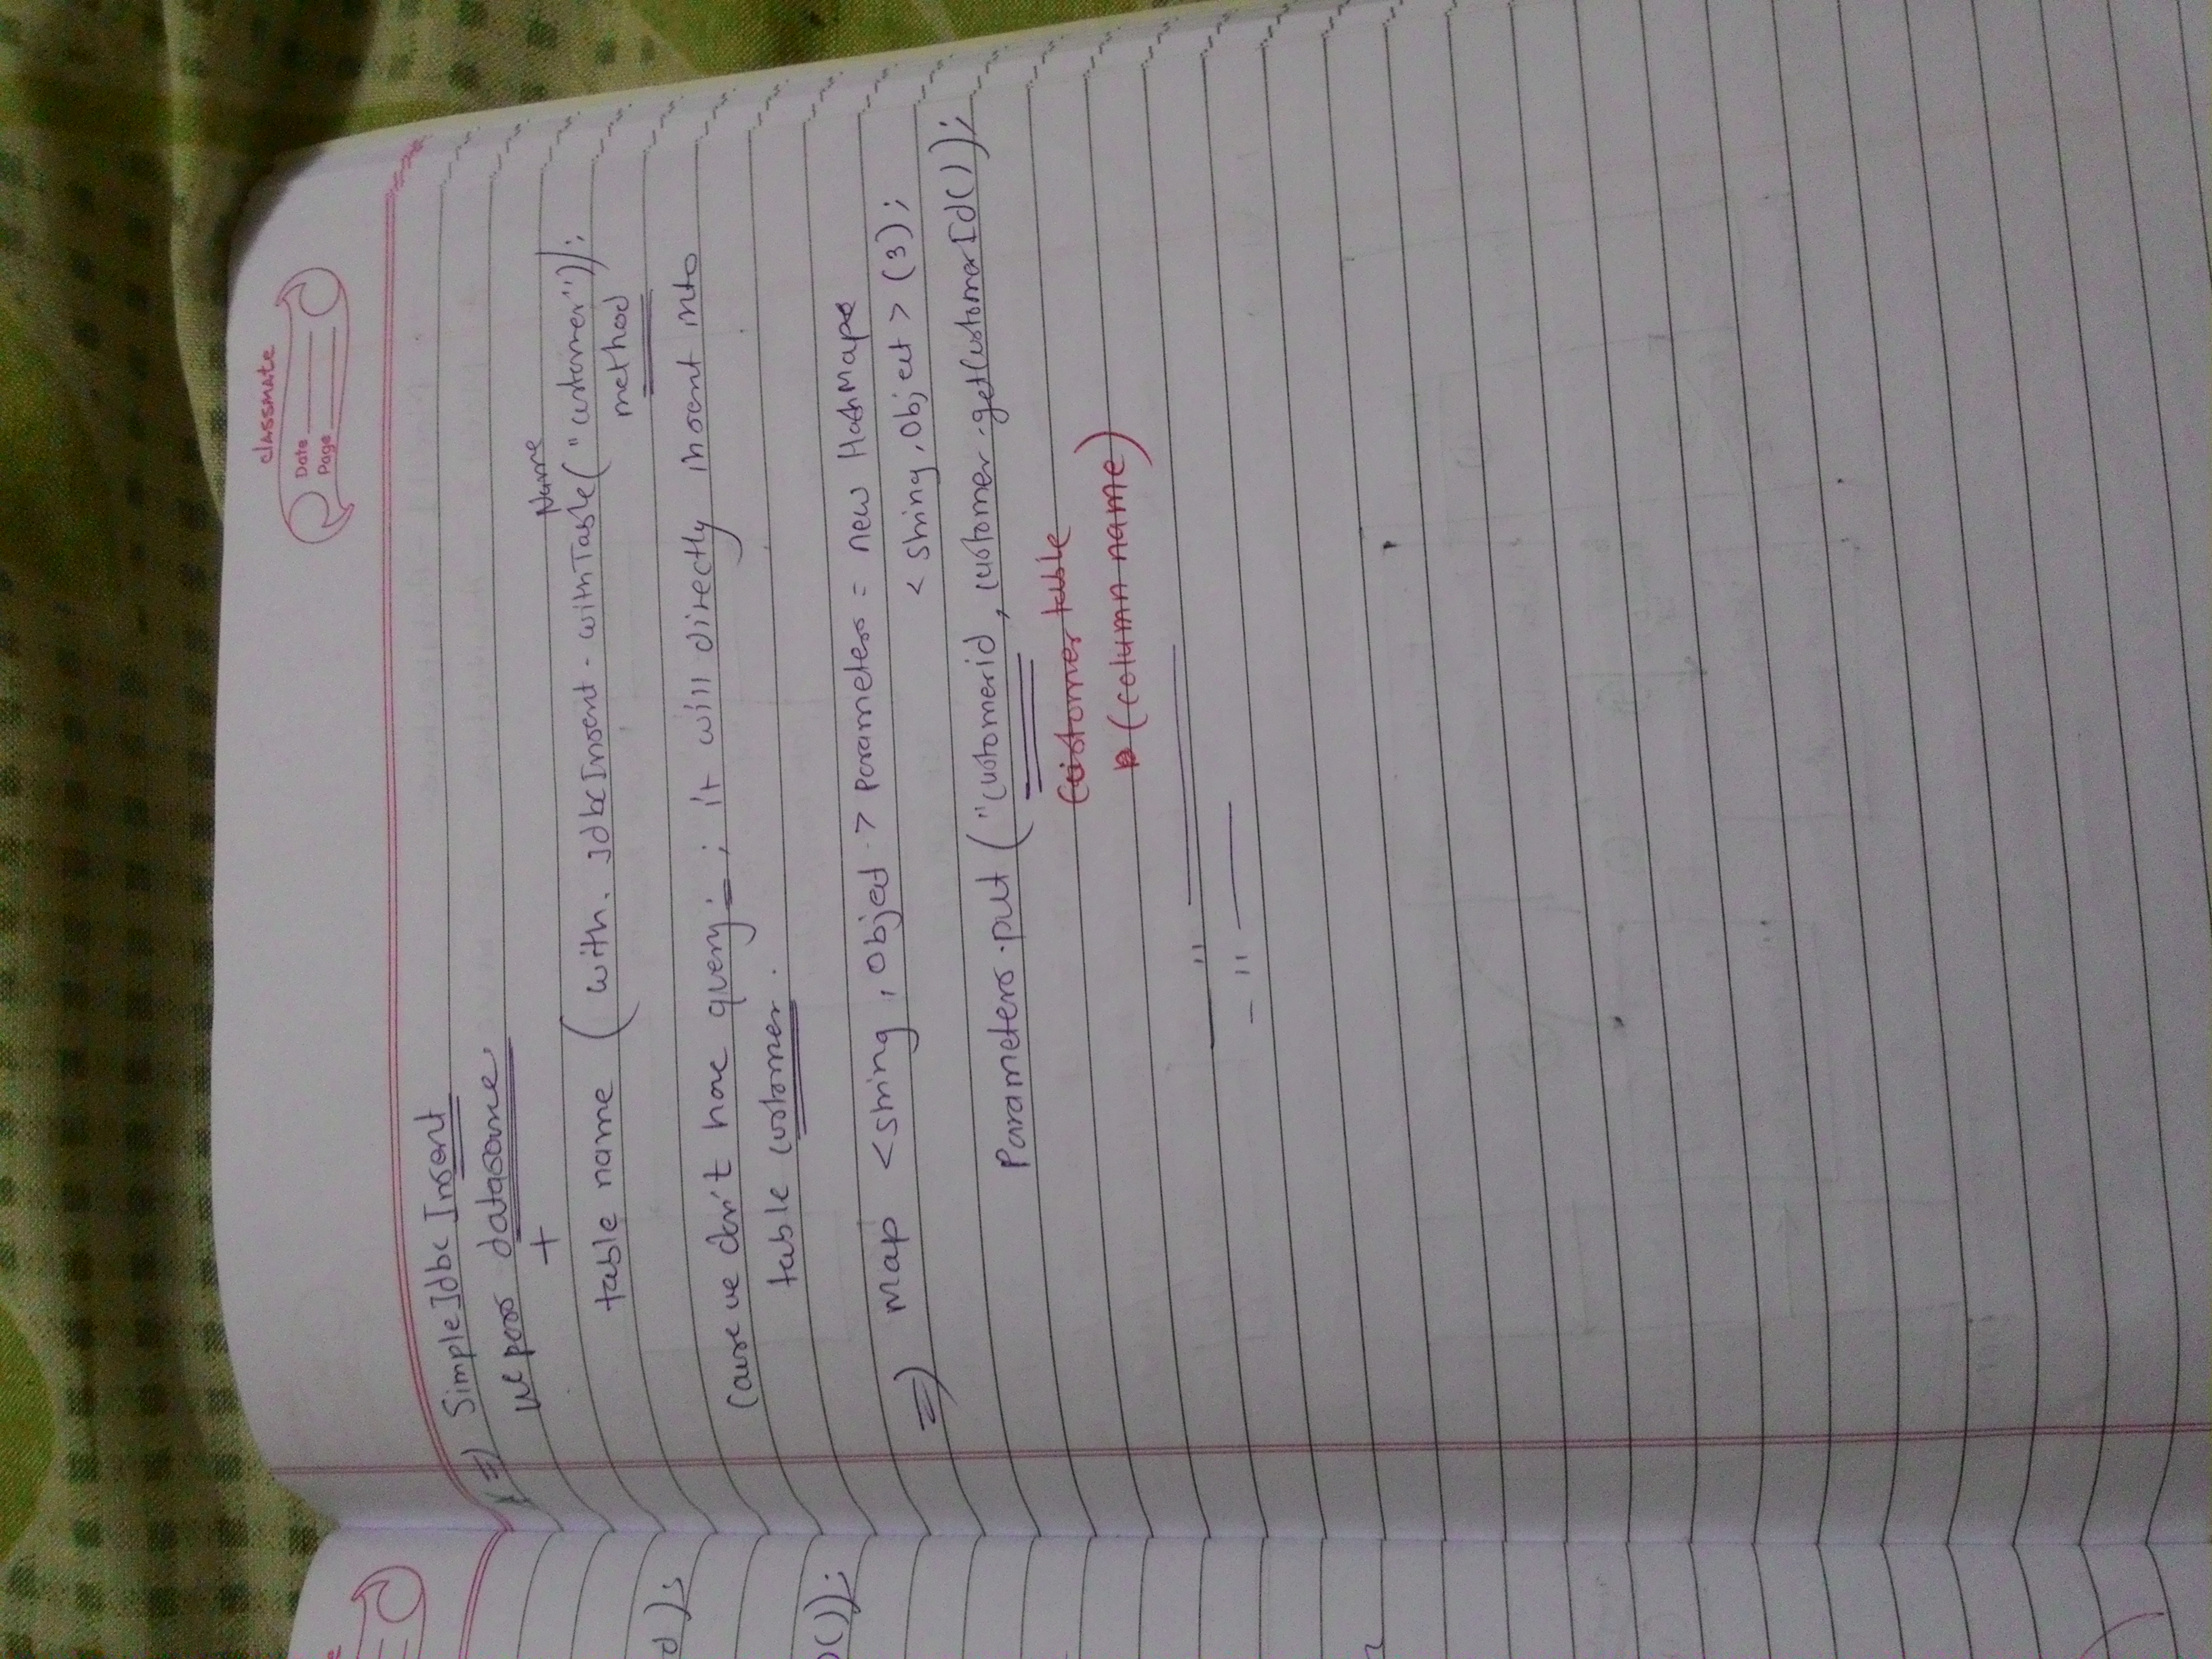 classmate
Date
Page
=) SimpleJdbcInsert
we pass datasource.
+
table name ( with. JdbcInsert - withTableName("customer"));
method
Cause we don't have query ; it will directly insert into
table customer .
=) Map <String , Object > parameters = new HashMap
< String , Object > (3) ;
Parameters.put ( "customerid , customer.getCustomerId() ) ;
Customer table
(column name)
— " ———
— " ———
d ) ;
)( ) ) ;